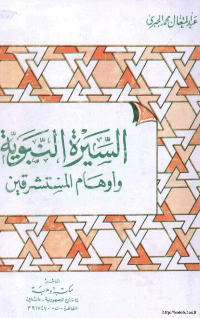 عبد المتعال محمد الجبري
السيرة النبوية
وأوهام المستشرقين
الناشر
مكتبة وهبة
١٤ شارع الجمهورية - عابدين
القاهرة - ت ٣٩١٧٤٧٠